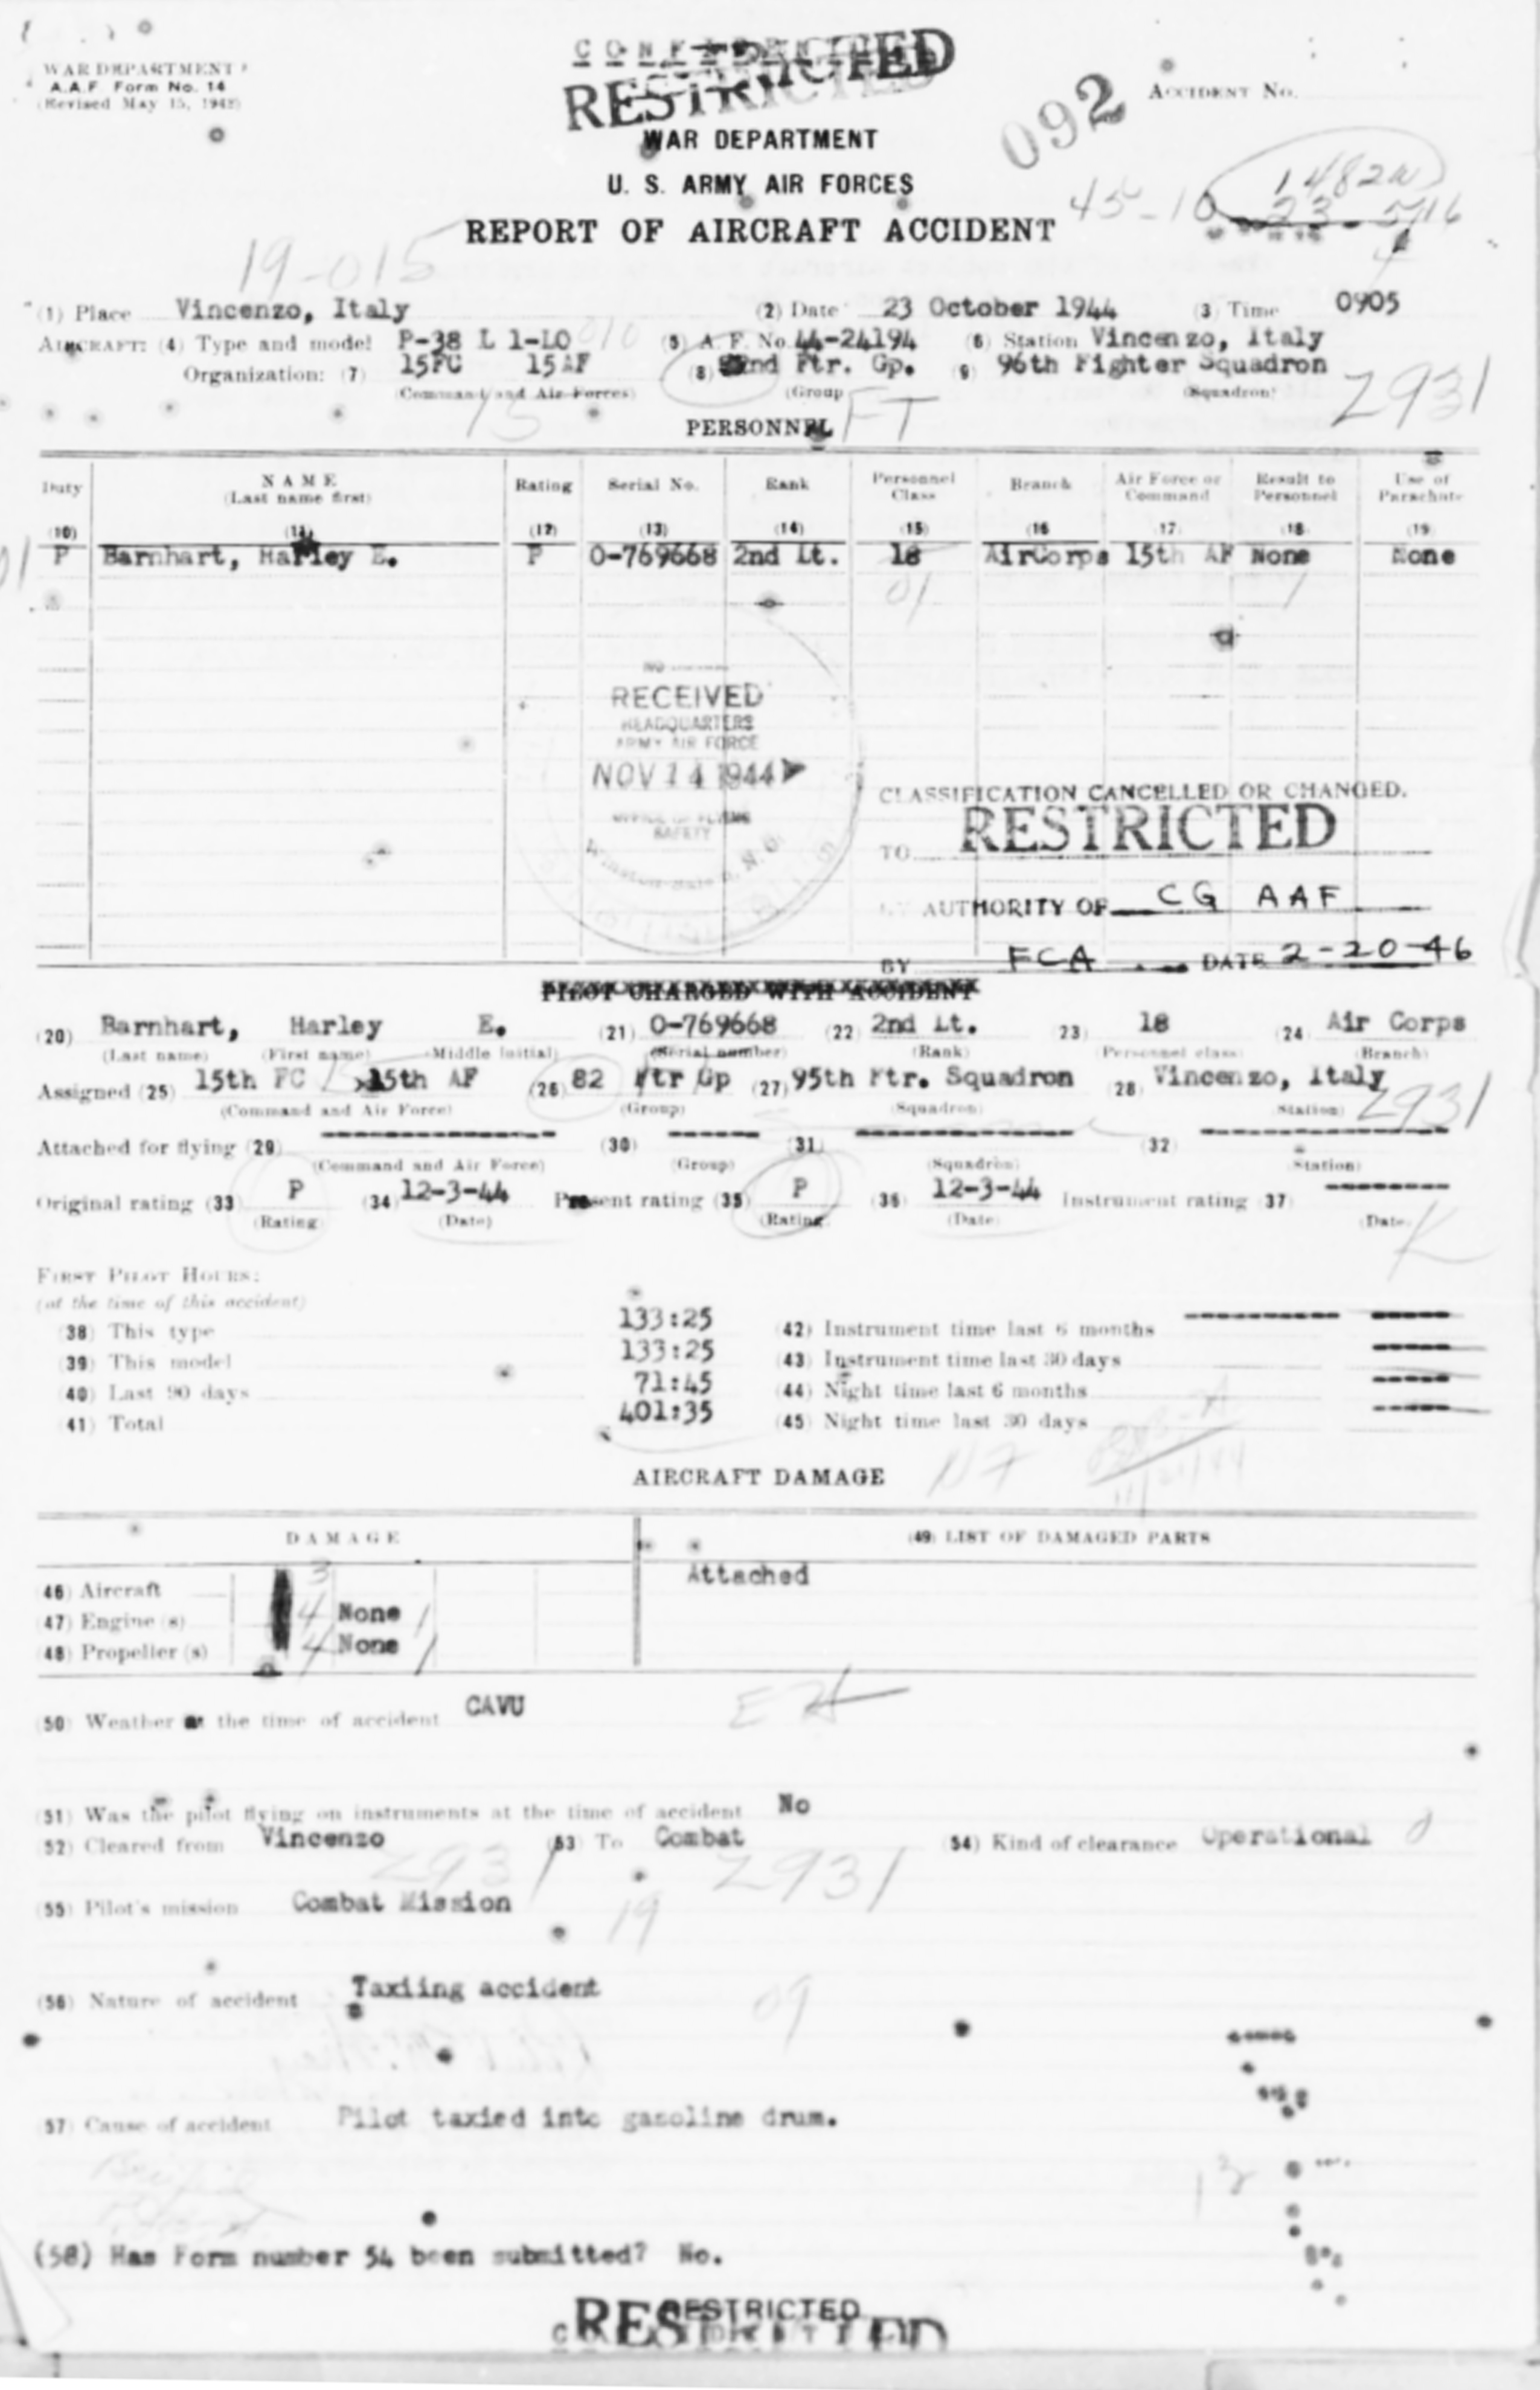 CONFIDENTIAL
RESTRICTED
WAR DEPARTMENT
A.A.F. Form No. 14
(Revised May 15, 1942)
092
ACCIDENT No.
WAR DEPARTMENT
U. S. ARMY AIR FORCES
REPORT OF AIRCRAFT ACCIDENT
1482W
45-10 23 5716
19-015
(1) Place Vincenzo, Italy (2) Date 23 October 1944 (3) Time 0905
AIRCRAFT: (4) Type and model P-38 L 1-LO 010 (5) A. F. No. 44-24194 (6) Station Vincenzo, Italy
Organization: (7) 15FC 15AF (8) 82nd Ftr. Gp. (9) 96th Fighter Squadron
(Command and Air Forces) (Group) (Squadron)
15 FT Z931
PERSONNEL
Duty NAME (Last name first) Rating Serial No. Rank Personnel Class Branch Air Force or Command Result to Personnel Use of Parachute
(10) (11) (12) (13) (14) (15) (16) (17) (18) (19)
01 P Barnhart, Harley E. P O-769668 2nd Lt. 18 AirCorps 15th AF None None
01 1
NO
RECEIVED
HEADQUARTERS
ARMY AIR FORCE
NOV 14 1944
OFFICE OF FLYING
SAFETY
Winston-Salem, N. C.
CLASSIFICATION CANCELLED OR CHANGED.
TO RESTRICTED
BY AUTHORITY OF CG AAF
BY FCA DATE 2-20-46
PILOT CHARGED WITH ACCIDENT
(20) Barnhart, Harley E. (21) O-769668 (22) 2nd Lt. (23) 18 (24) Air Corps
(Last name) (First name) (Middle initial) (Serial number) (Rank) (Personnel class) (Branch)
Assigned (25) 15th FC 15th AF (26) 82 Ftr Gp (27) 95th Ftr. Squadron (28) Vincenzo, Italy
(Command and Air Force) (Group) (Squadron) (Station) Z931
Attached for flying (29) ---------- (30) ---------- (31) ---------- (32) ----------
(Command and Air Force) (Group) (Squadron) (Station)
Original rating (33) P (34) 12-3-44 Present rating (35) P (36) 12-3-44 Instrument rating (37) ----------
(Rating) (Date) (Rating) (Date) (Date)
K
FIRST PILOT HOURS:
(at the time of this accident)
(38) This type 133:25 (42) Instrument time last 6 months
(39) This model 133:25 (43) Instrument time last 30 days
(40) Last 90 days 71:45 (44) Night time last 6 months
(41) Total 401:35 (45) Night time last 30 days
AIRCRAFT DAMAGE
DAMAGE (49) LIST OF DAMAGED PARTS
(46) Aircraft 3 Attached
(47) Engine (s) 4 None 1
(48) Propeller (s) 4 None 1
(50) Weather at the time of accident CAVU
(51) Was the pilot flying on instruments at the time of accident No
(52) Cleared from Vincenzo (53) To Combat (54) Kind of clearance Operational
Z931 Z931
(55) Pilot's mission Combat Mission
19
(56) Nature of accident Taxiing accident
09
(57) Cause of accident Pilot taxied into gasoline drum.
(58) Has Form number 54 been submitted? No.
RESTRICTED
RESTRICTED
CONFIDENTIAL